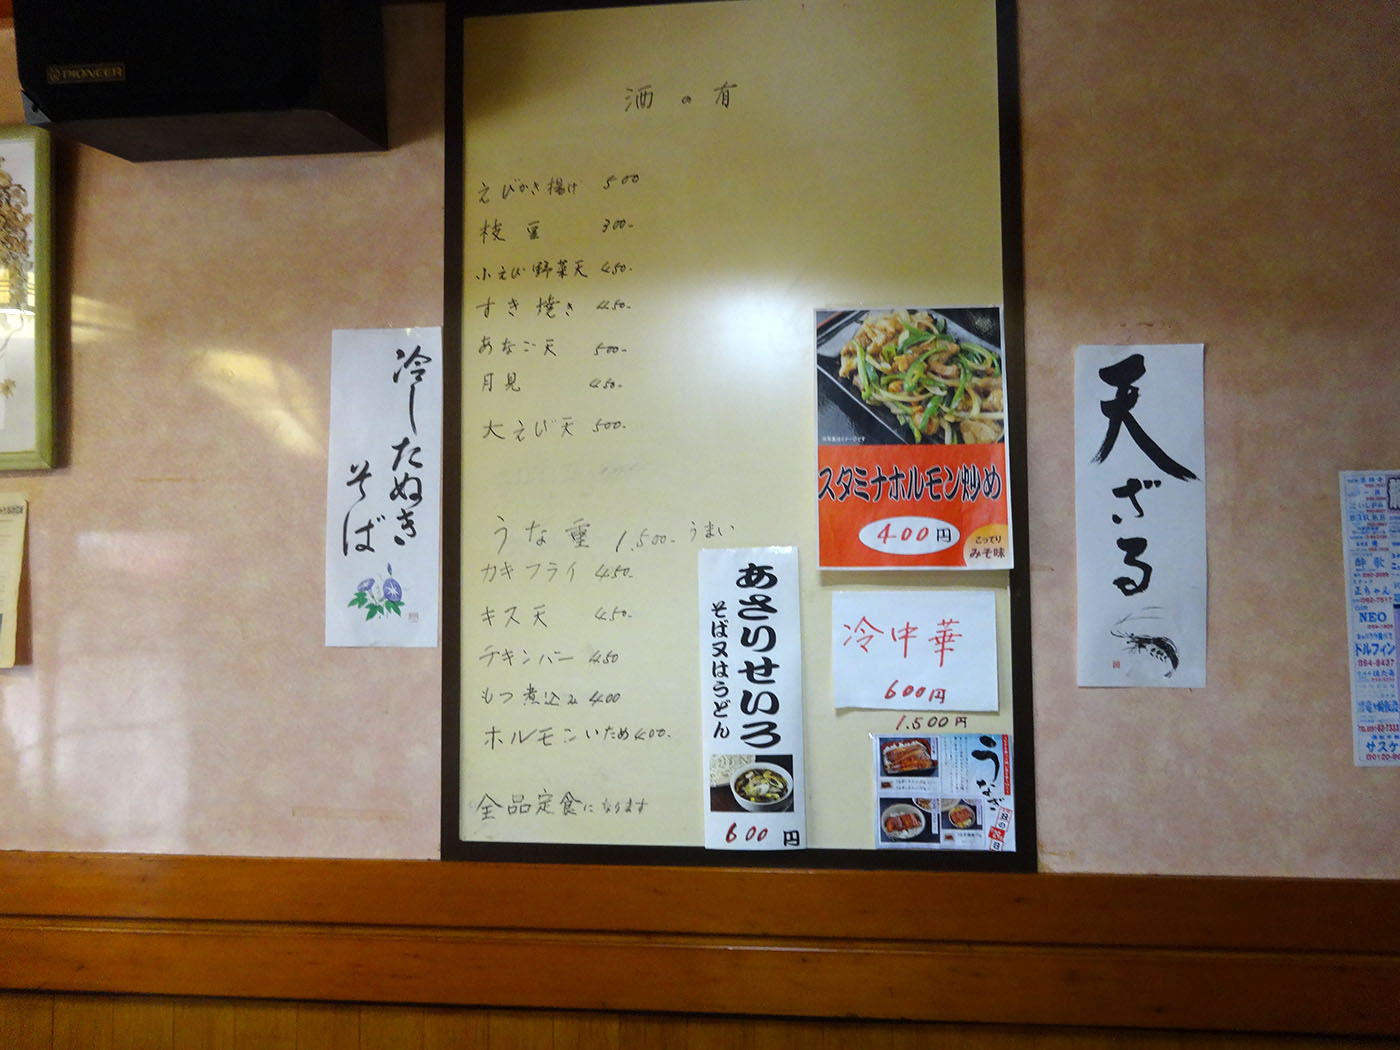 PIONEER
酒の有
えびかき揚げ 500
枝豆 300-
小えび野菜天 450-
すき焼き 450-
あなご天 500-
月見 450-
大えび天 500-
うな重 1.500- うまい
カキフライ 450-
キス天 450-
チキンバー 450
もつ煮込み 400
ホルモンいため 400-
全品定食になります
冷したぬき
そば
あさりせいろ
そば又はうどん
600円
スタミナホルモン炒め
400円
こってり
みそ味
冷中華
600円
1.500円
うなぎ
天ざる
酔歌
正ちゃん
NEO
ドルフィン
サスケ